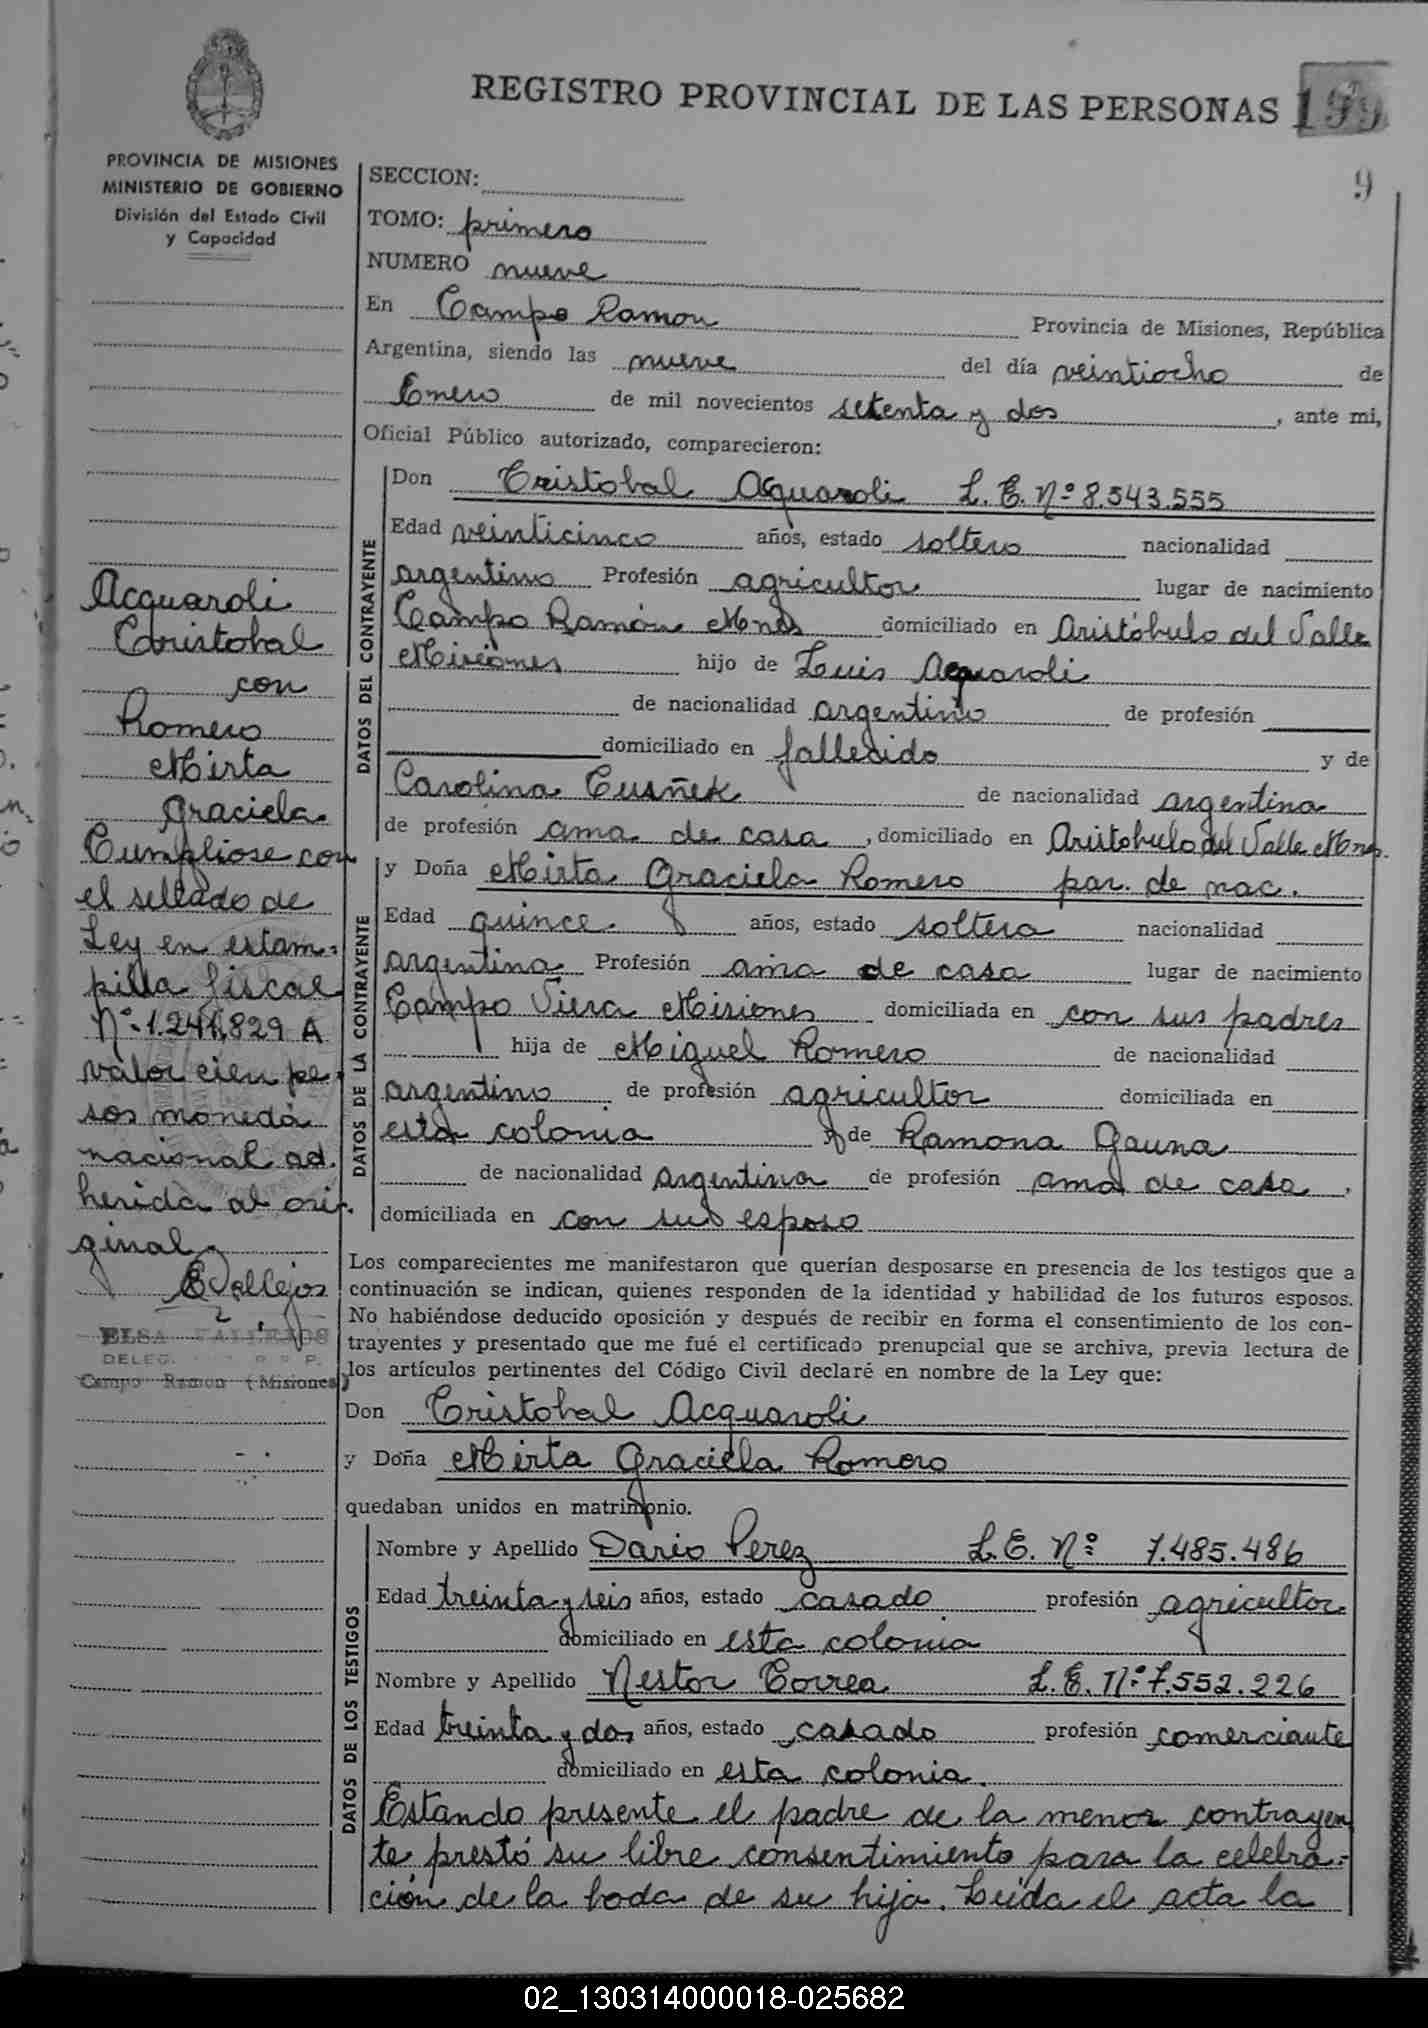 REGISTRO PROVINCIAL DE LAS PERSONAS 199
9
PROVINCIA DE MISIONES
MINISTERIO DE GOBIERNO
División del Estado Civil
y Capacidad
Acquaroli
Cristobal
con
Romero
Mirta
Graciela
Cumpliose con
el sellado de
Ley en estam-
pilla fiscal
Nº 1.241,829 A
valor cien pe-
sos moneda
nacional ad.
herida al ori-
ginal
EVallejos
ELSA VALLEJOS
DELEG. R P P.
Campo Ramon (Misiones)
SECCION:
TOMO: primero
NUMERO nueve
En Campo Ramon Provincia de Misiones, República
Argentina, siendo las nueve del día veintiocho de
Enero de mil novecientos setenta y dos, ante mi,
Oficial Público autorizado, comparecieron:
DATOS DEL CONTRAYENTE
Don Cristobal Acquaroli L. E. Nº 8.543.555
Edad veinticinco años, estado soltero nacionalidad
argentino Profesión agricultor lugar de nacimiento
Campo Ramón Mnes domiciliado en Aristóbulo del Valle
Misiones hijo de Luis Acquaroli
de nacionalidad argentino de profesión
domiciliado en fallecido y de
Carolina Cusñek de nacionalidad argentina
de profesión ama de casa, domiciliado en Aristobulo del Valle Mnes.
DATOS DE LA CONTRAYENTE
y Doña Mirta Graciela Romero par. de nac.
Edad quince. años, estado soltera nacionalidad
argentina Profesión ama de casa lugar de nacimiento
Campo Viera Misiones domiciliada en con sus padres
hija de Miguel Romero de nacionalidad
argentino de profesión agricultor domiciliada en
esta colonia y de Ramona Gauna
de nacionalidad Argentina de profesión ama de casa,
domiciliada en con su esposo
Los comparecientes me manifestaron que querían desposarse en presencia de los testigos que a
continuación se indican, quienes responden de la identidad y habilidad de los futuros esposos.
No habiéndose deducido oposición y después de recibir en forma el consentimiento de los con-
trayentes y presentado que me fué el certificado prenupcial que se archiva, previa lectura de
los artículos pertinentes del Código Civil declaré en nombre de la Ley que:
Don Cristobal Acquaroli
y Doña Mirta Graciela Romero
quedaban unidos en matrimonio.
DATOS DE LOS TESTIGOS
Nombre y Apellido Dario Perez L. E. Nº 7.485.486
Edad treinta y seis años, estado casado profesión agricultor
domiciliado en esta colonia
Nombre y Apellido Nestor Correa L. E. Nº 7.552.226
Edad treinta y dos años, estado casado profesión comerciante
domiciliado en esta colonia.
Estando presente el padre de la menor contrayen
te prestó su libre consentimiento para la celebra-
ción de la boda de su hija. Leida el acta la
02_130314000018-025682